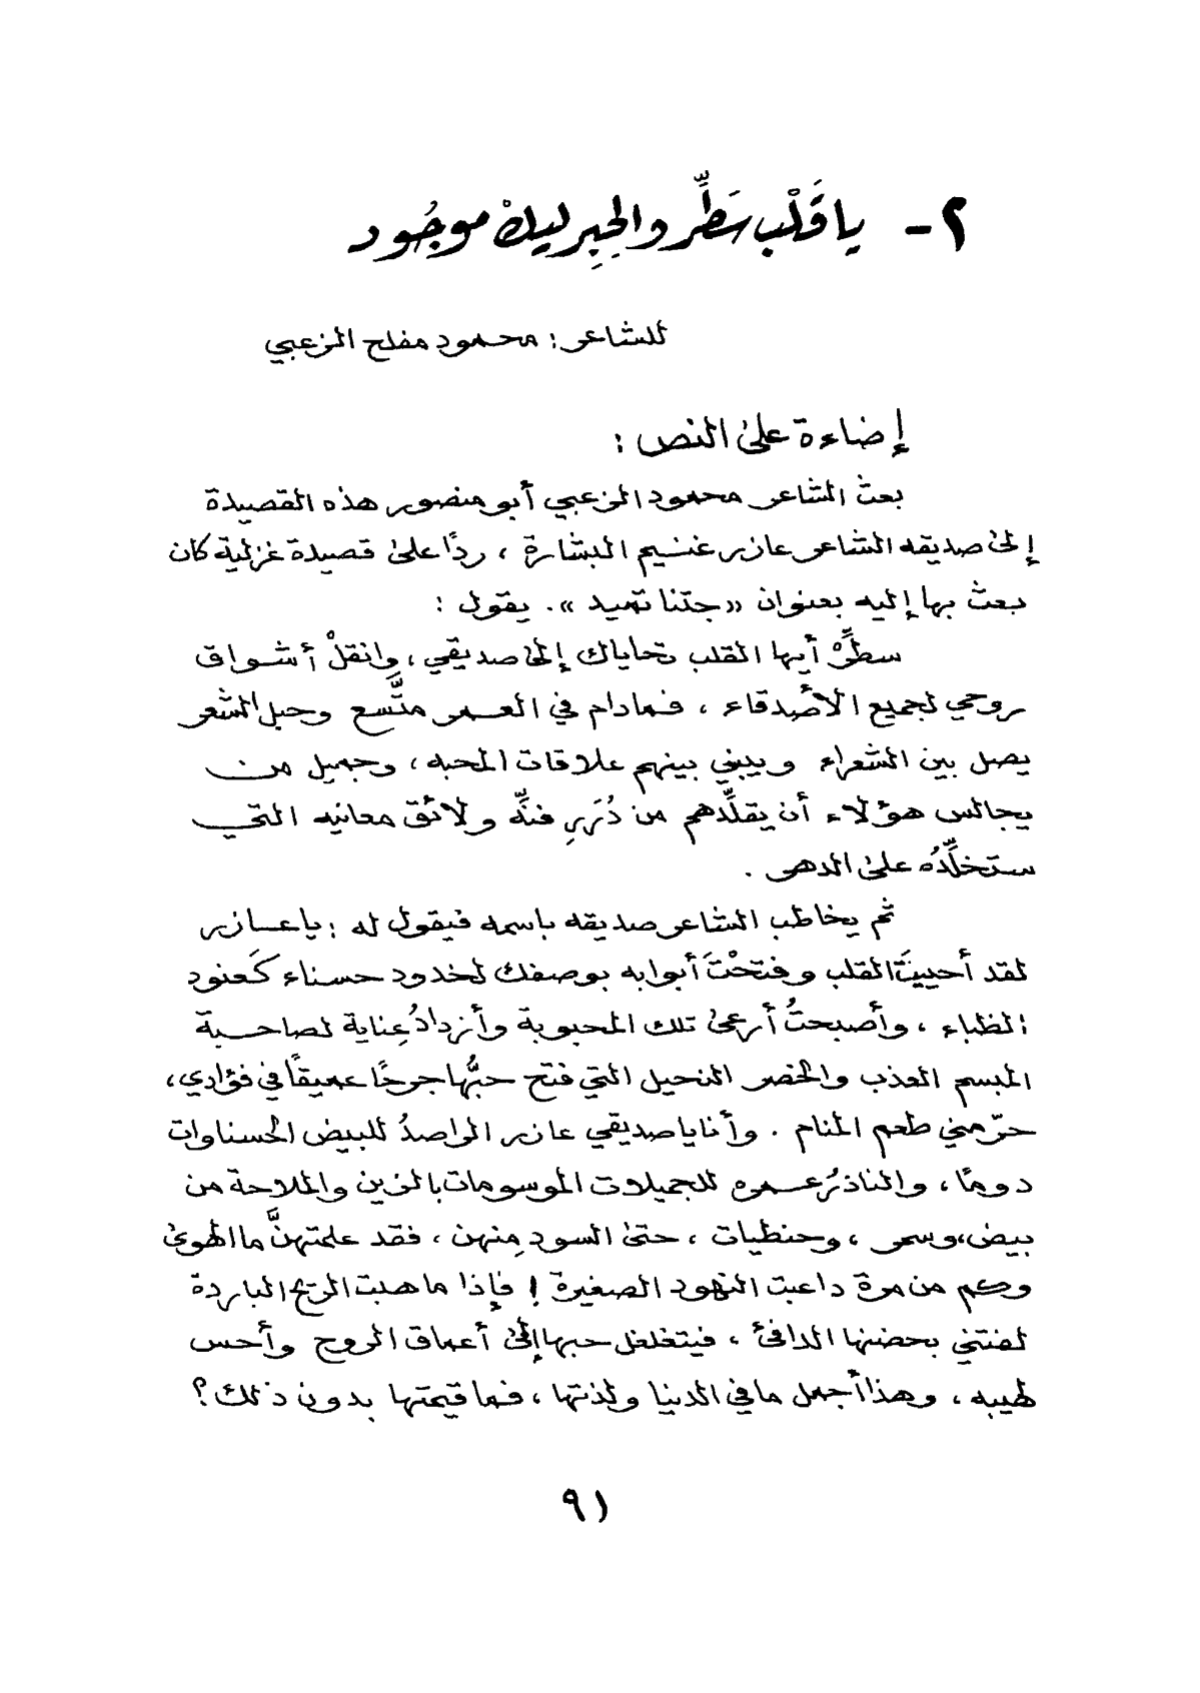 ٢- يا قَلْب سَطِّر والحِبِر ليكْ موجُود
للشاعر : محمود مفلح الزعبي
إضاءة على النص :
بعث الشاعر محمود الزعبي أبو منصور هذه القصيدة
إلى صديقه الشاعر عازر غنيم البشارة ، ردًا على قصيدة غزلية كان
بعث بها إليه بعنوان «جتنا تميد». يقول :
سطِّرْ أيها القلب تحاياك إلى صديقي ، وانقلْ أشواق
روحي لجميع الأصدقاء ، فمادام في العمر متَّسع وحبل الشعر
يصل بين الشعراء ويبني بينهم علاقات المحبه ، وجميل من
يجالس هؤلاء أن يقلِّدهم من دُرَرِ فنِّه ولائق معانيه التي
ستخلِّدُه على الدهر .
ثم يخاطب الشاعر صديقه باسمه فيقول له : يا عازر
لقد أحييتَ القلب وفتحْتَ أبوابه بوصفك لخدود حسناء كَعنود
الظباء ، وأصبحتُ أرعى تلك المحبوبة وأزدادُ عِناية لصاحبة
المبسم العذب والخصر النحيل التي فتح حبُّها جرحًا عميقًا في فؤادي،
حرّمني طعم المنام . وأنا يا صديقي عازر الراصدُ للبيض الحسناوات
دومًا ، والناذرُ عمره للجميلات الموسومات بالزين والملاحة من
بيض، وسمر ، وحنطيات ، حتى السود مِنهن ، فقد علمتهنَّ ما الهوى
وكم من مرة داعبت النهود الصغيرة ! فإذا ما هبت الريح الباردة
لفتني بحضنها الدافئ ، فيتغلغل حبها إلى أعماق الروح وأحس
طيبه ، وهذا أجمل ما في الدنيا ولذتها ، فما قيمتها بدون ذلك ؟
٩١